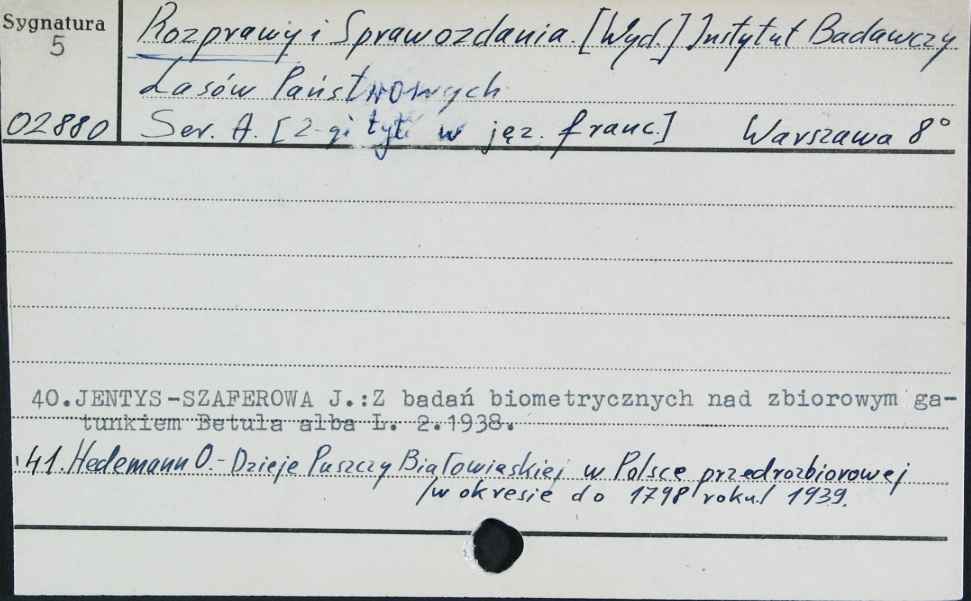 Sygnatura
5
02880
Rozprawy i Sprawozdania. [Wyd.] Instytut Badawczy
Lasów Państwowych
Ser. A. [2-gi tyt. w jęz. franc.] Warszawa 8°
40. JENTYS-SZAFEROWA J.: Z badań biometrycznych nad zbiorowym ga-
tunkiem Betula alba L. 2.1938.
41. Hedemann O. - Dzieje Puszczy Białowieskiej w Polsce przedrozbiorowej
/w okresie do 1798 roku/ 1939.